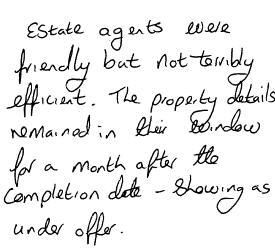 Estate agents were
friendly but not terribly
efficient. The property details
remained in their window
for a month after the
completion date - showing as
under offer.